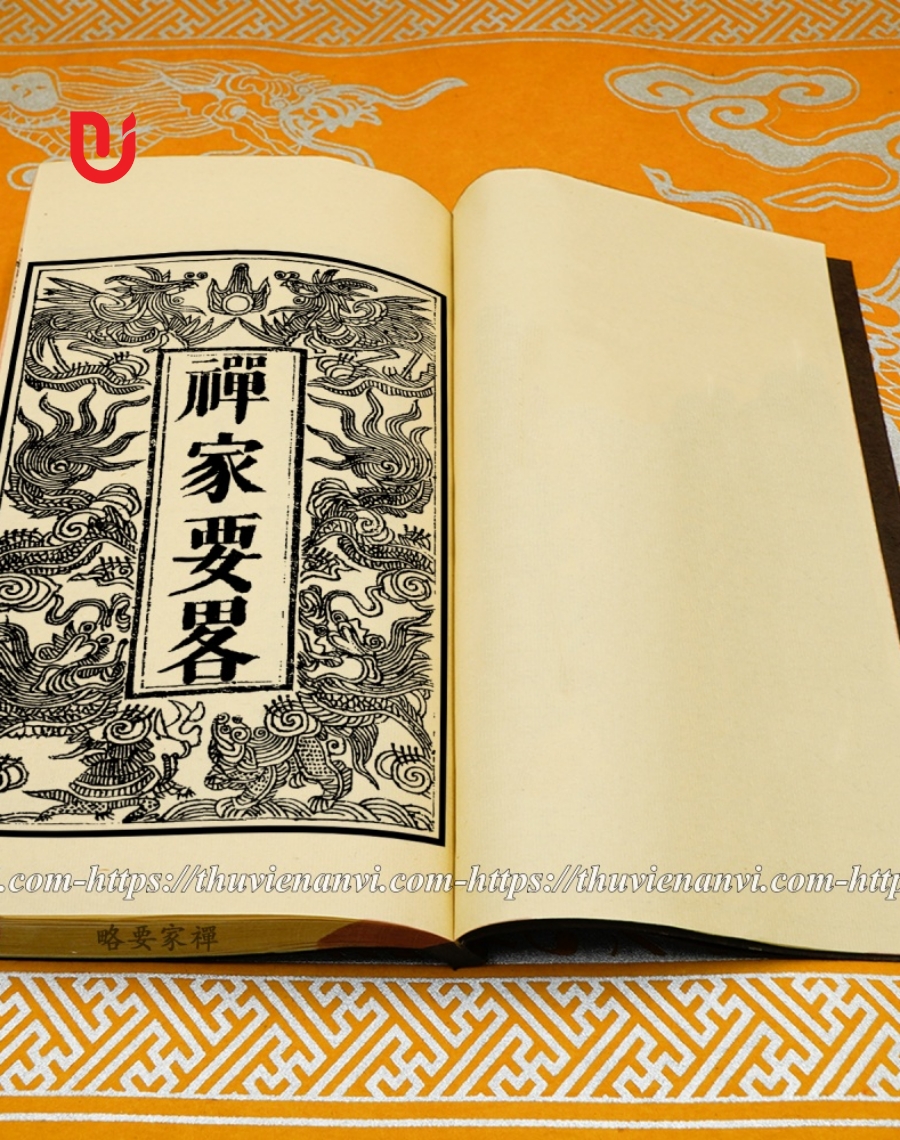 禪家要畧
.com-https://thuvienanvi.com-https://thuvienanvi.com-http
禪家要略